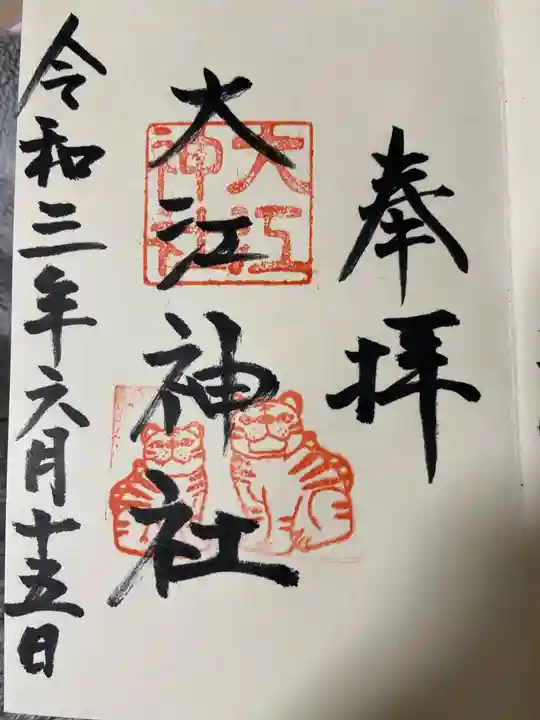 奉拝
大江神社
大江神社
令和三年六月十五日